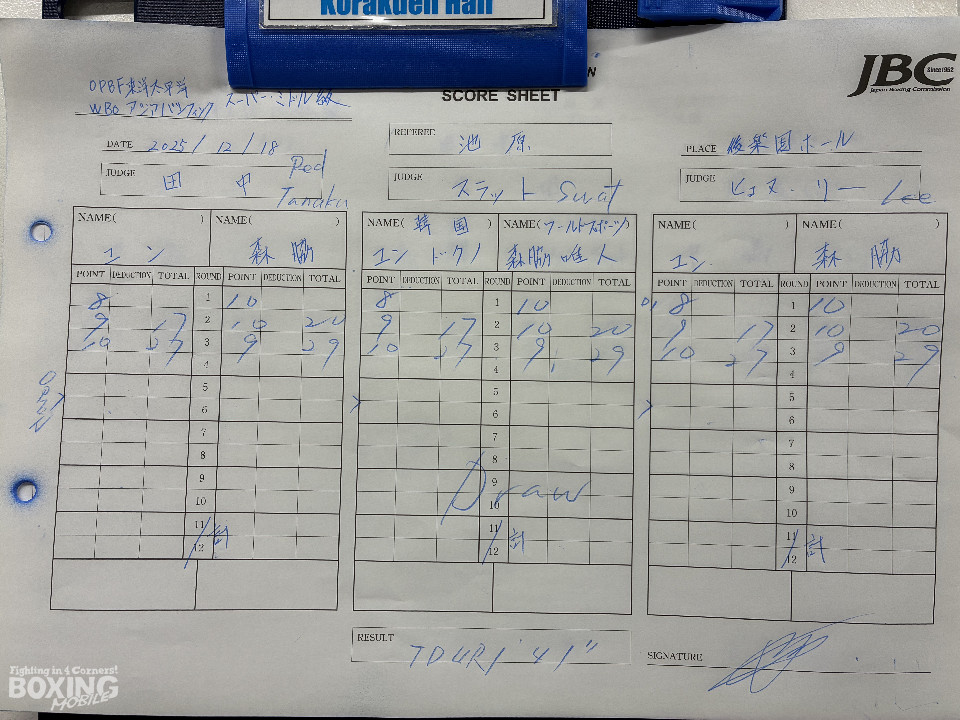 Korakuen Hall
OPBF東洋太平洋
WBO アジアパシフィック スーパー・ミドル級
SCORE SHEET
JBC Since1952
Japan Boxing Commission
DATE 2025/12/18
REFEREE 池原
PLACE 後楽園ホール
JUDGE 田中 Red Tanaka
JUDGE スラット Surat
JUDGE ヒョヌ・リー Lee
NAME( ) NAME( ) NAME( 韓国 ) NAME(ワールドスポーツ) NAME( ) NAME( )
ユン 森脇 ユン ドクノ 森脇唯人 ユン 森脇
POINT DEDUCTION TOTAL ROUND POINT DEDUCTION TOTAL POINT DEDUCTION TOTAL ROUND POINT DEDUCTION TOTAL POINT DEDUCTION TOTAL ROUND POINT DEDUCTION TOTAL
8 1 10 8 1 10 8 1 10
9 17 2 10 20 9 17 2 10 20 9 17 2 10 20
10 27 3 9 29 10 27 3 9 29 10 27 3 9 29
4 4 4
OPEN
5 5 5
6 6 6
7 7 7
8 8 8
9 9 9
Draw
10 10 10
11 11 11
計 計 計
12 12 12
RESULT TD4R1'41"
SIGNATURE
Fighting in 4 Corners!
BOXING
MOBILE